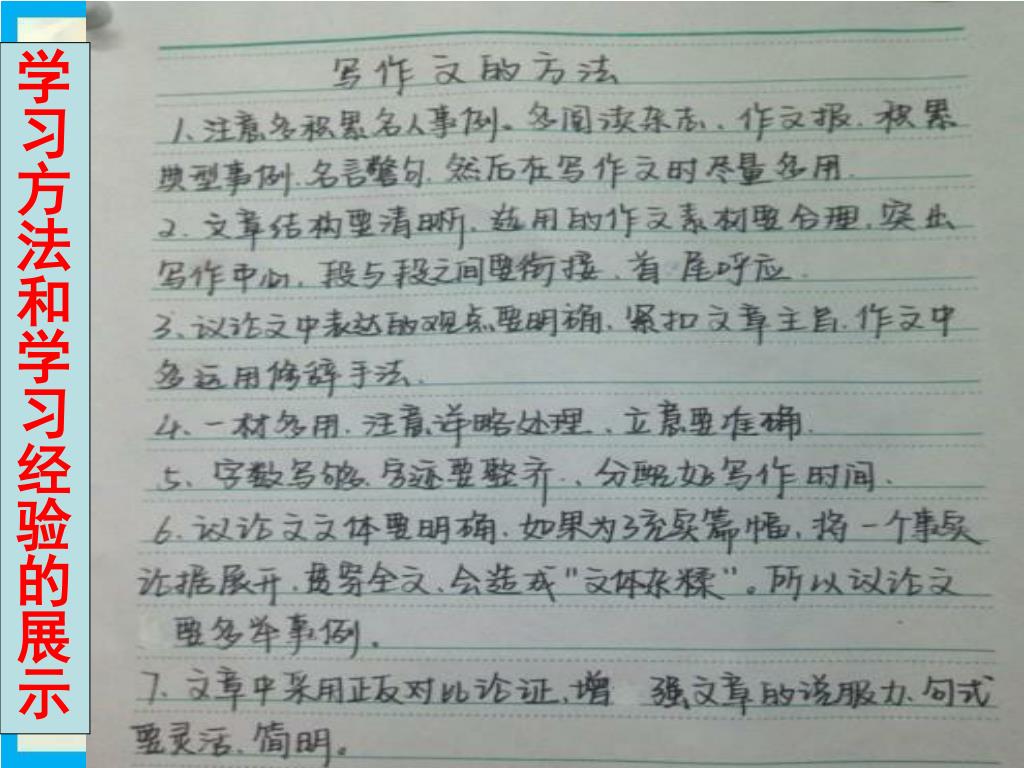 学习方法和学习经验的展示
写作文的方法
1、注意多积累名人事例。多阅读杂志、作文报、积累
典型事例、名言警句、然后在写作文时尽量多用.
2、文章结构要清晰、选用的作文素材要合理、突出
写作中心、段与段之间要衔接、首尾呼应.
3、议论文中表达的观点要明确、紧扣文章主旨、作文中
多运用修辞手法.
4、一材多用、注意详略处理、立意要准确.
5、字数写够、字迹要整齐、、分配好写作时间.
6、议论文文体要明确、如果为了充实篇幅、将一个事实
论据展开、贯穿全文、会造成“文体杂糅”。所以议论文
要多举事例.
7、文章中采用正反对比论证、增 强文章的说服力、句式
要灵活、简明。